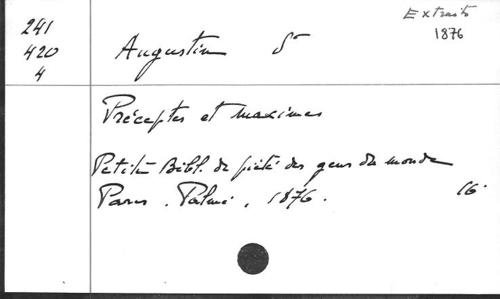 Extraits
1876
241
420
4
Augustin St
Préceptes et maximes
Petite Bibl. de piété des gens du monde
Paris. Palmé, 1876. 16°